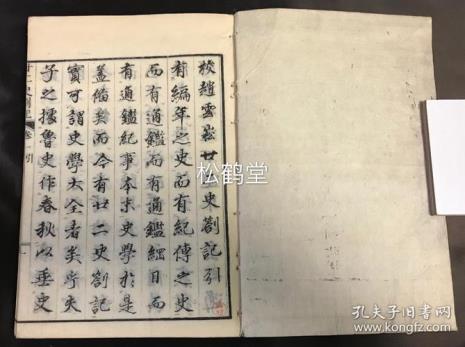 校趙雲崧廿二史劄記引
有編年之史而有紀傳之史
而有通鑑而有通鑑綱目而
有通鑑紀事本末史學於是
盖備矣而今有廿二史劄記
實可謂史學大全者矣乎夫
子之據魯史作春秋以垂史
廿二史劄記 卷一 引
松鹤堂
孔夫子旧书网
www.kongfz.com